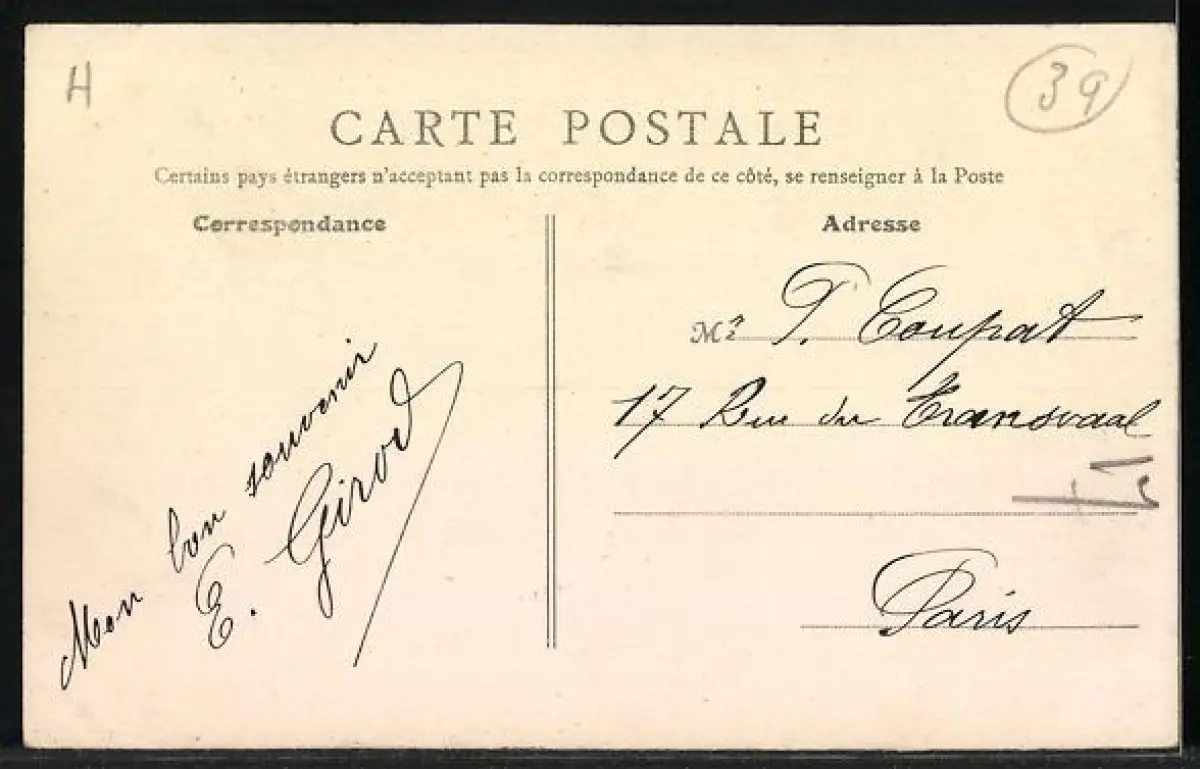 H
39
CARTE POSTALE
Certains pays étrangers n'acceptant pas la correspondance de ce côté, se renseigner à la Poste
Correspondance
Mon bon souvenir
E. Girod
Adresse
Mr P. Coupat
17 Rue du Transvaal
Paris